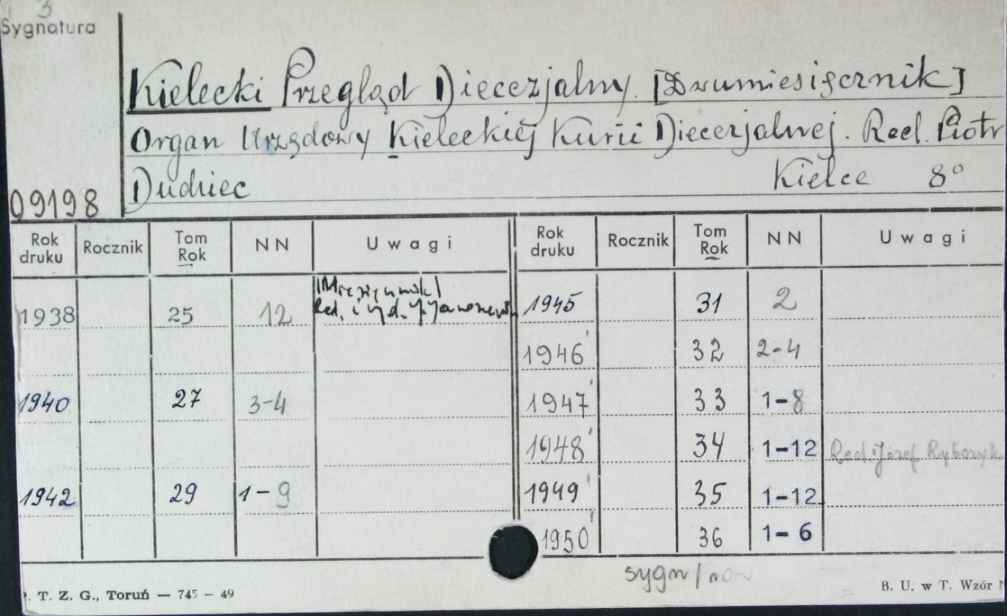 3
Sygnatura
Kielecki Przegląd Diecezjalny. [Dwumiesięcznik]
Organ Urzędowy Kieleckiej Kurii Diecezjalnej. Red. Piotr
Dudziec Kielce 8°
09198
Rok druku Rocznik Tom Rok NN Uwagi Rok druku Rocznik Tom Rok NN Uwagi
[Miesięcznik]
1938 25 12 Red. i wyd. 1945 31 2
1946 32 2-4
1940 27 3-4 1947 33 1-8
1948 34 1-12 Red. Józef
1942 29 1-9 1949 35 1-12
1950 36 1-6
sygn/
T. Z. G., Toruń — 745 — 49 B. U. w T. Wzór